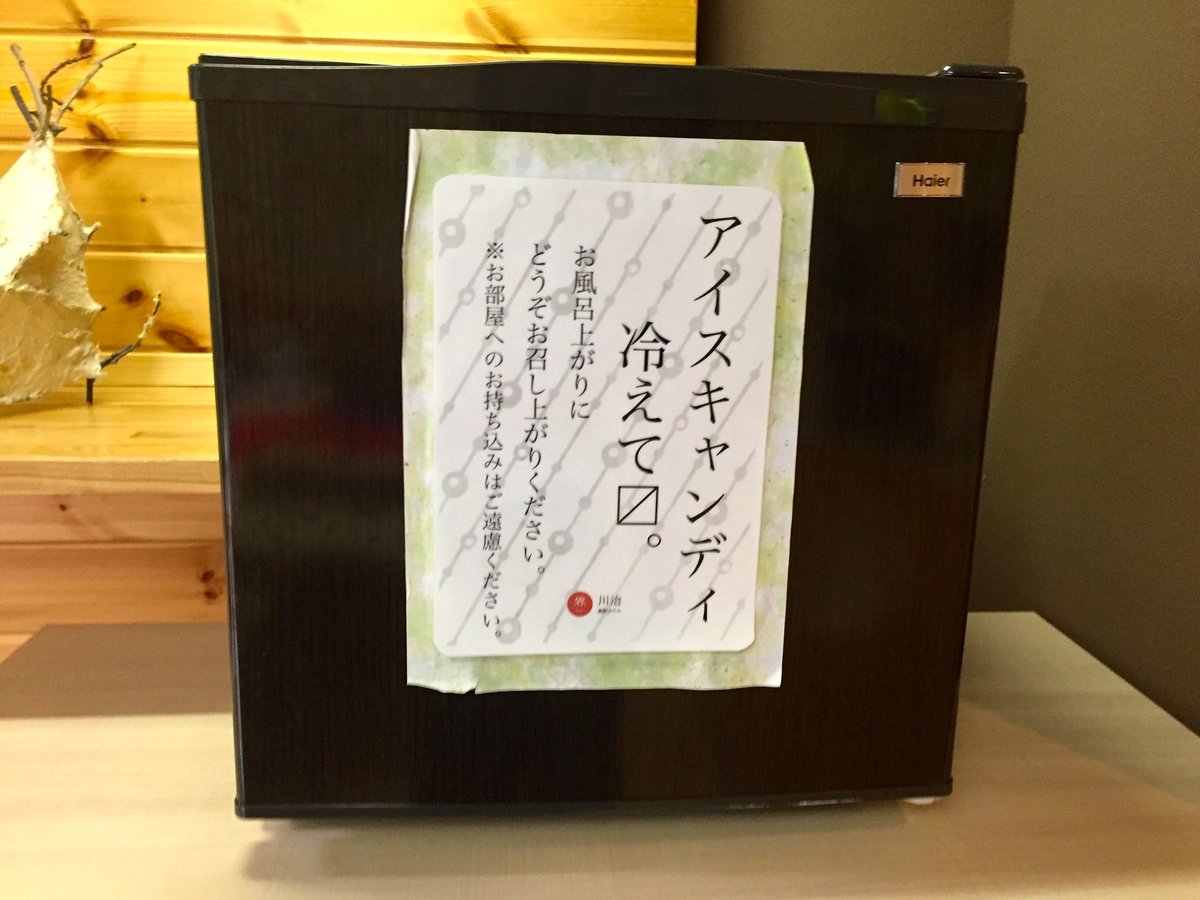 アイスキャンディ
冷えて〼。
お風呂上がりに
どうぞお召し上がりください。
※お部屋へのお持ち込みはご遠慮ください。
界
川治
Haier